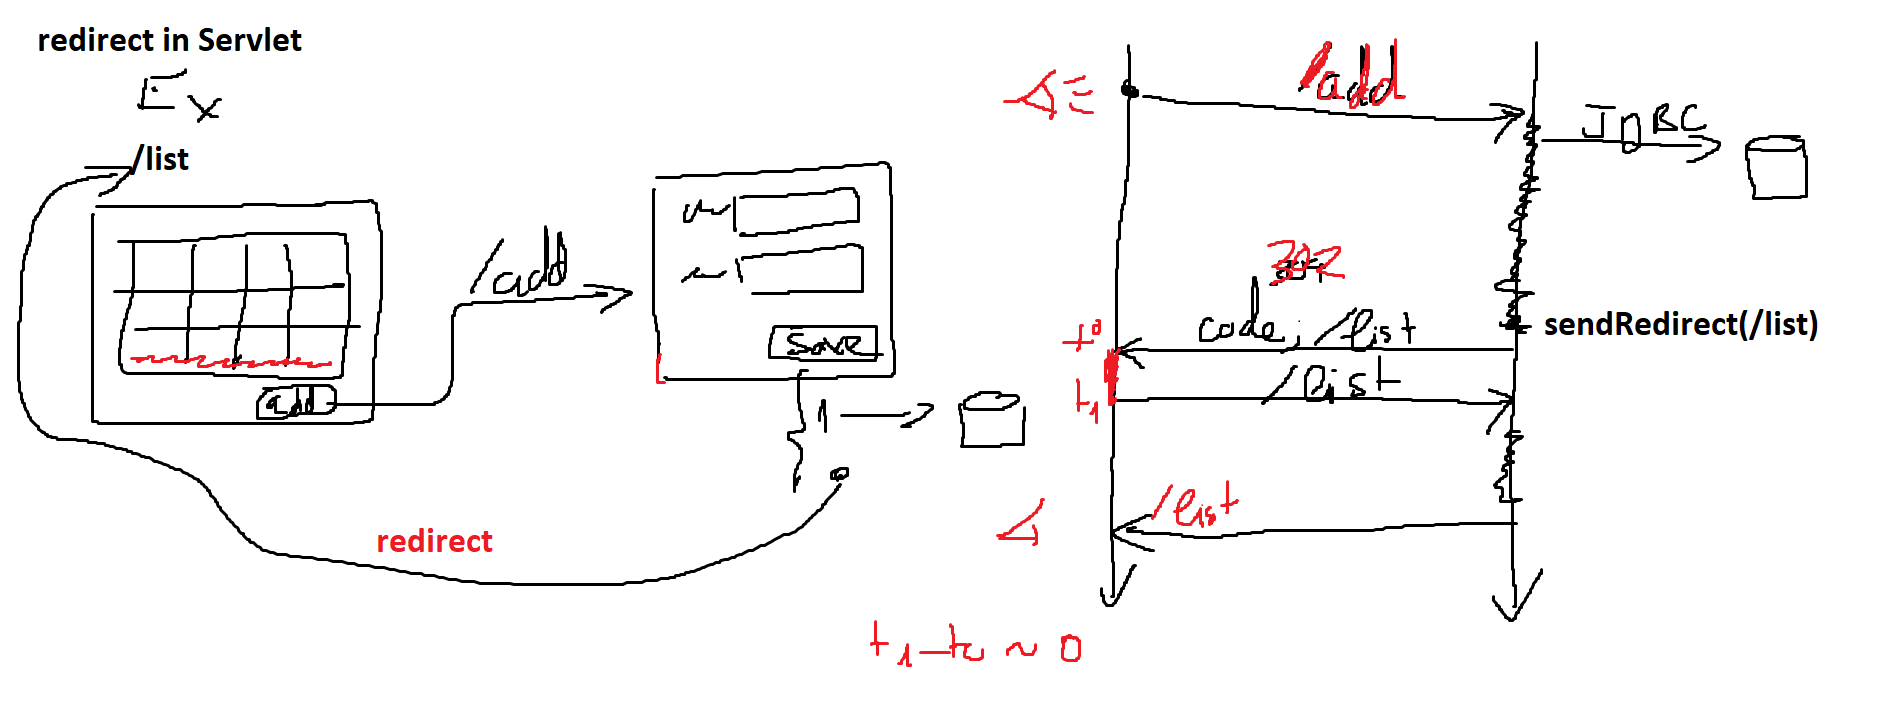 redirect in Servlet
Ex
/list
/add
add
Save
1
redirect
/add
JDBC
302
code, /list
sendRedirect(/list)
t0
/list
t1
/list
t1-t0 ~ 0